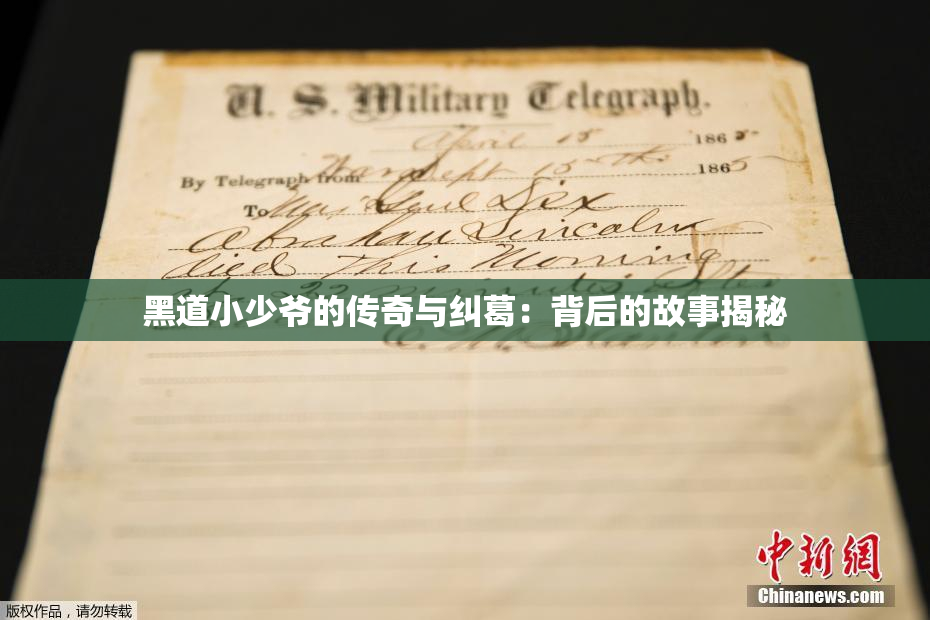 U. S. Military Telegraph.
April 15 1865
By Telegraph from War Dept 15th 1865
To Maj Genl Dix
Abraham Lincoln
died This Morning
at 22 minutes after
黑道小少爷的传奇与纠葛：背后的故事揭秘
E. M. Stanton
中新網
Chinanews.com
版权作品，请勿转载